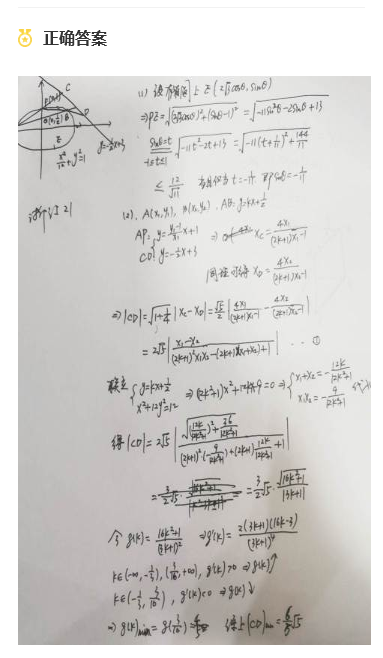 正确答案
(1) 设 上 E(2√3cosθ, sinθ)
⇒PE=√((2√3cosθ)²+(sinθ-1)²) = √(-11sin²θ-2sinθ+13)
sinθ=t
-1≤t≤1 √(-11t²-2t+13) = √(-11(t+1/11)²+144/11)
≤ 12/√11 t=-1/11 即sinθ=-1/11
(2), A(x₁,y₁), B(x₂,y₂), AB: y=kx+1/2
AP: y=(y₁-1)/x₁ x+1
CD: y=-1/2x+3 ⇒ x_C=4x₁/((2k+1)x₁-1)
同理可得 x_D=4x₂/((2k+1)x₂-1)
⇒|CD|=√(1+1/4)|x_C-x_D|=√5/2|4x₁/((2k+1)x₁-1) - 4x₂/((2k+1)x₂-1)|
=2√5|(x₁-x₂)/((2k+1)²x₁x₂-(2k+1)(x₁+x₂)+1)| ... ①
联立 {y=kx+1/2 x²+12y²=12 ⇒(12k²+1)x²+12kx-9=0⇒ {x₁+x₂=-12k/(12k²+1) x₁x₂=-9/(12k²+1)
得|CD|=2√5|√((12k/(12k²+1))²+36/(12k²+1))/((2k+1)²(-9/(12k²+1))+(2k+1)12k/(12k²+1)+1)|
=3/2√5·√(16k²+1)/|3k+1|
令 g(k)=(16k²+1)/(3k+1)² ⇒g'(k)=2(3k+1)(16k-3)/(3k+1)⁴
k∈(-∞,-1/3),(3/16,+∞), g'(k)>0⇒g(k)↑
k∈(-1/3,3/16), g'(k)<0⇒g(k)↓
⇒g(k)min=g(3/16)= 综上|CD|min=6/5√5